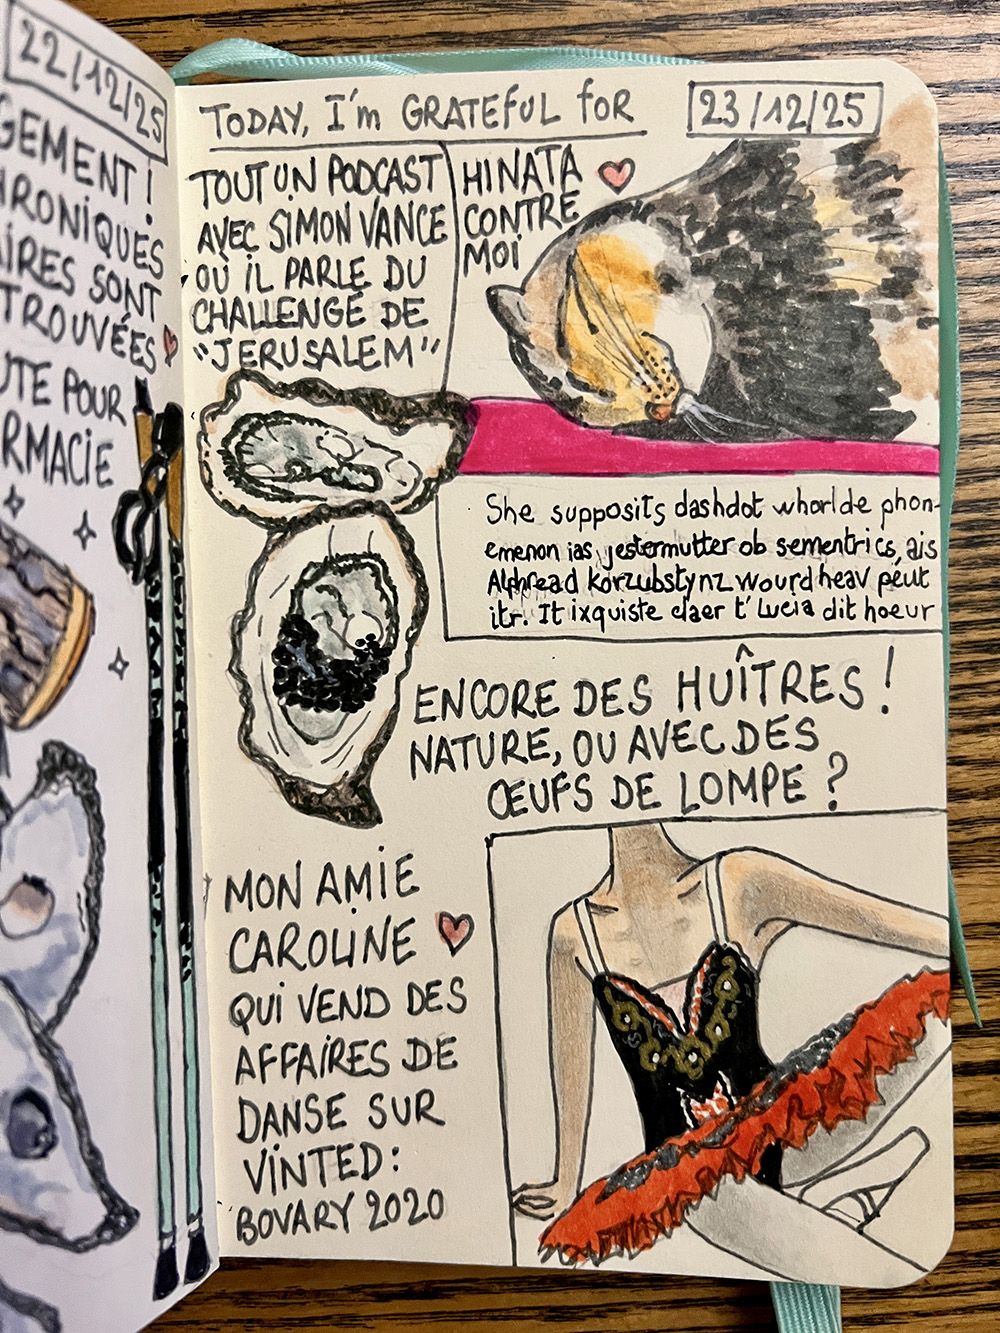 22/12/25
GEMENT !
HRONIQUES
AIRES SONT
TROUVÉES
UTE POUR
RMACIE
TODAY, I'm GRATEFUL for
23/12/25
TOUT UN PODCAST
AVEC SIMON VANCE
OÙ IL PARLE DU
CHALLENGE DE
"JERUSALEM"
HINATA
CONTRE
MOI
She supposits dashdot whorlde phon-
emenon ias, jestermutter ob sementrics, ais
Alphread korzubstynz wourd heav peut
itr. It ixquiste claer t' Lucia dit hoeur
ENCORE DES HUÎTRES !
NATURE, OU AVEC DES
ŒUFS DE LOMPE ?
MON AMIE
CAROLINE
QUI VEND DES
AFFAIRES DE
DANSE SUR
VINTED :
BOVARY 2020